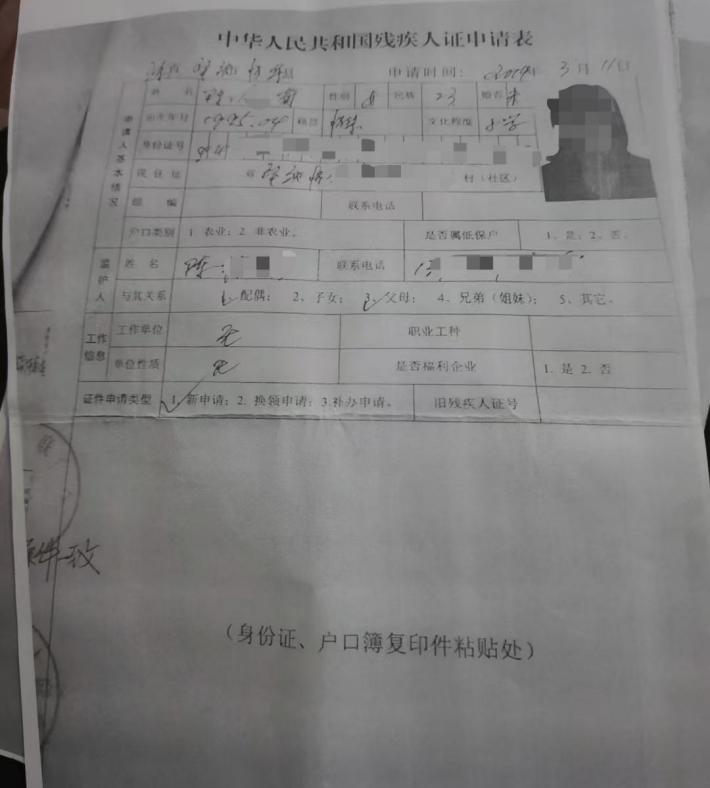 中华人民共和国残疾人证申请表
申请时间: 2019年 3月 11日
申请人基本情况
姓 名 性别 女 民族 婚否 未
出生年月 1995.04 籍贯 文化程度 小学
身份证号
现住址 村(社区)
邮 编 联系电话
户口类别 1 农业; 2. 非农业。 是否属低保户 1、是; 2、否。
监护人
姓 名 陈 联系电话
与其关系 1、配偶; 2、子女; 3、父母; 4、兄弟(姐妹); 5、其它。
工作信息
工作单位 无 职业工种
单位性质 无 是否福利企业 1. 是 2. 否
证件申请类型 1. 新申请; 2. 换领申请; 3.补办申请。 旧残疾人证号
(身份证、户口簿复印件粘贴处)